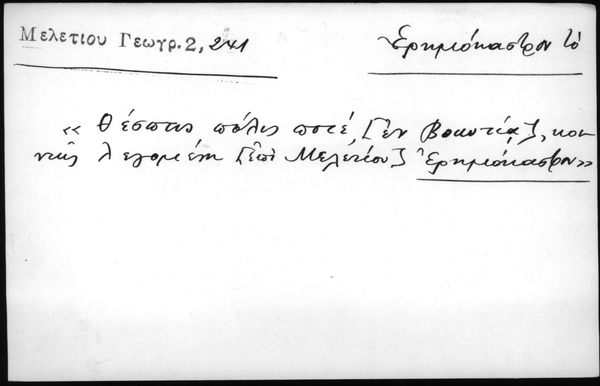 Μελετίου Γεωγρ. 2, 241
Ἐρημόκαστρον τὸ
« Θέσπια πόλις ποτέ, [ἐν Βοιωτίᾳ], κοι-
νῶς λεγομένη [ἐπὶ Μελετίου] Ἐρημόκαστρον»